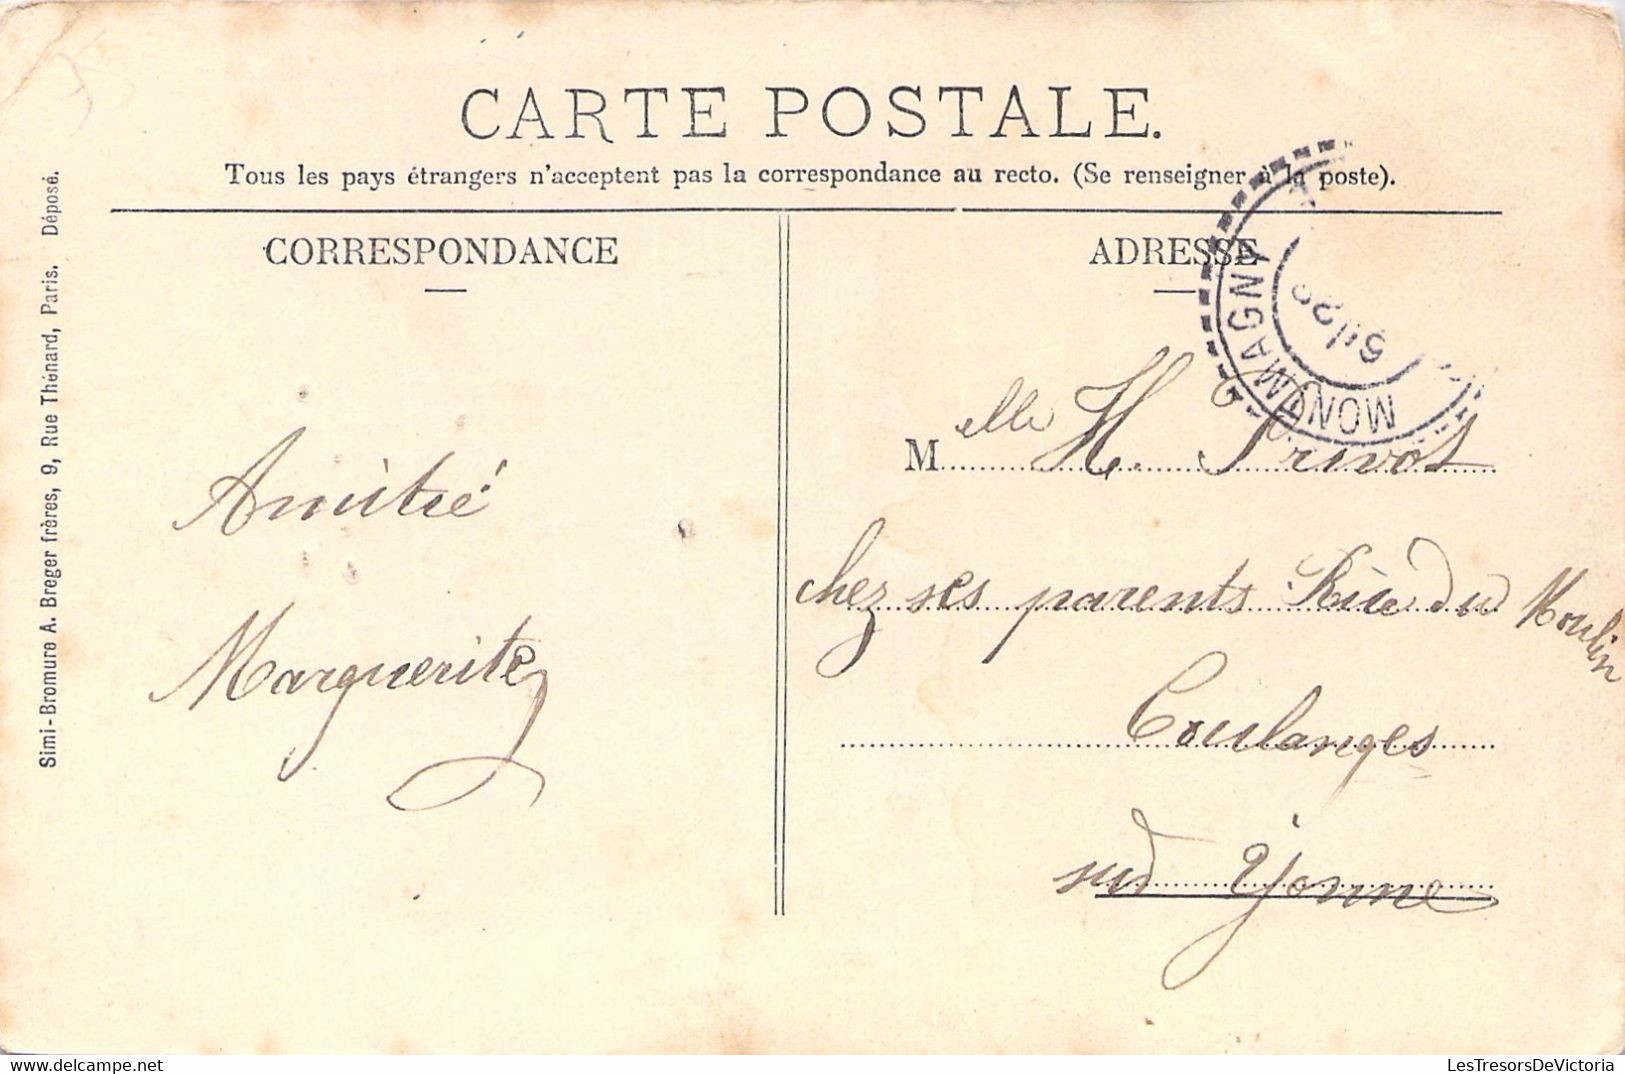 CARTE POSTALE.
Tous les pays étrangers n'acceptent pas la correspondance au recto. (Se renseigner à la poste).
CORRESPONDANCE
Amitié
Marguerite
ADRESSE
MONTMAGNY
Melle H. Privot
chez ses parents Rue du Moulin
Coulanges
sud Yonne
Simi-Bromure A. Breger frères, 9, Rue Thénard, Paris. Déposé.
www.delcampe.net
LesTresorsDeVictoria